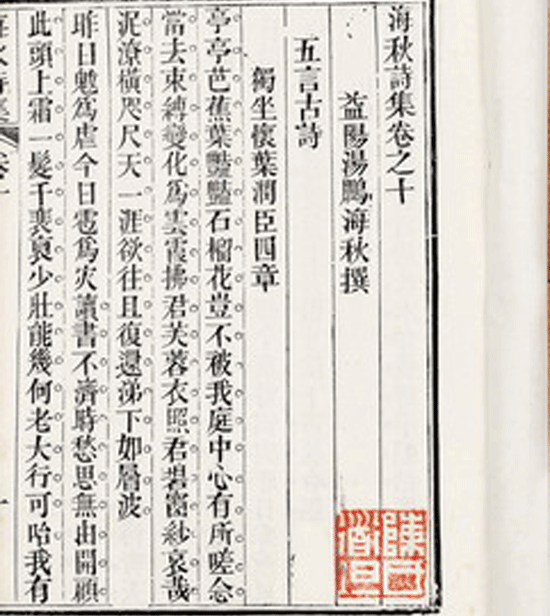 海秋詩集卷之十
益陽湯鵬海秋撰
五言古詩
獨坐懷葉潤臣四章
亭亭芭蕉葉豔豔石榴花豈不被我庭中心有所嗟念
當去束縛變化為雲霞拂君芙蓉衣照君碧窗紗哀哉
泥潦橫咫尺天一涯欲往且復還涕下如層波
昨日魃為虐今日雹為灾讀書不濟時愁思無由開禎
此頭上霜一髮千裴哀少壯能幾何老大行可咍我有